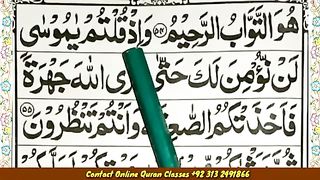 هُوَ التَّوَّابُ الرَّحِيْمُ ﴿۵۴﴾ وَاِذْ قُلْتُمْ يٰمُوْسٰى
لَنْ نُّؤْمِنَ لَكَ حَتّٰى نَرَى اللّٰهَ جَهْرَةً
فَاَخَذَتْكُمُ الصّٰعِقَةُ وَاَنْتُمْ تَنْظُرُوْنَ ﴿۵۵﴾
Contact Online Quran Classes +92 313 2491866